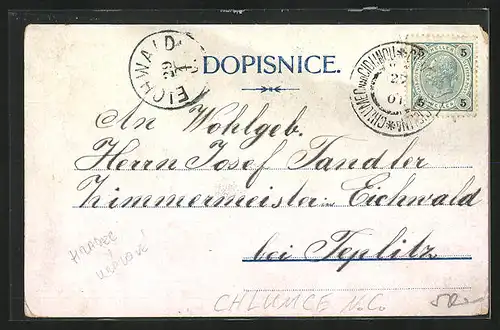 EICHWALD
29
DOPISNICE.
CHLUMEC NAD CIDLINOU
27
01
5 5
5 5
An Wohlgeb.
Herrn Josef Tandler
Zimmermeister in Eichwald
bei Teplitz
HRADEC
KRÁLOVÉ
CHLUMCE N.C.